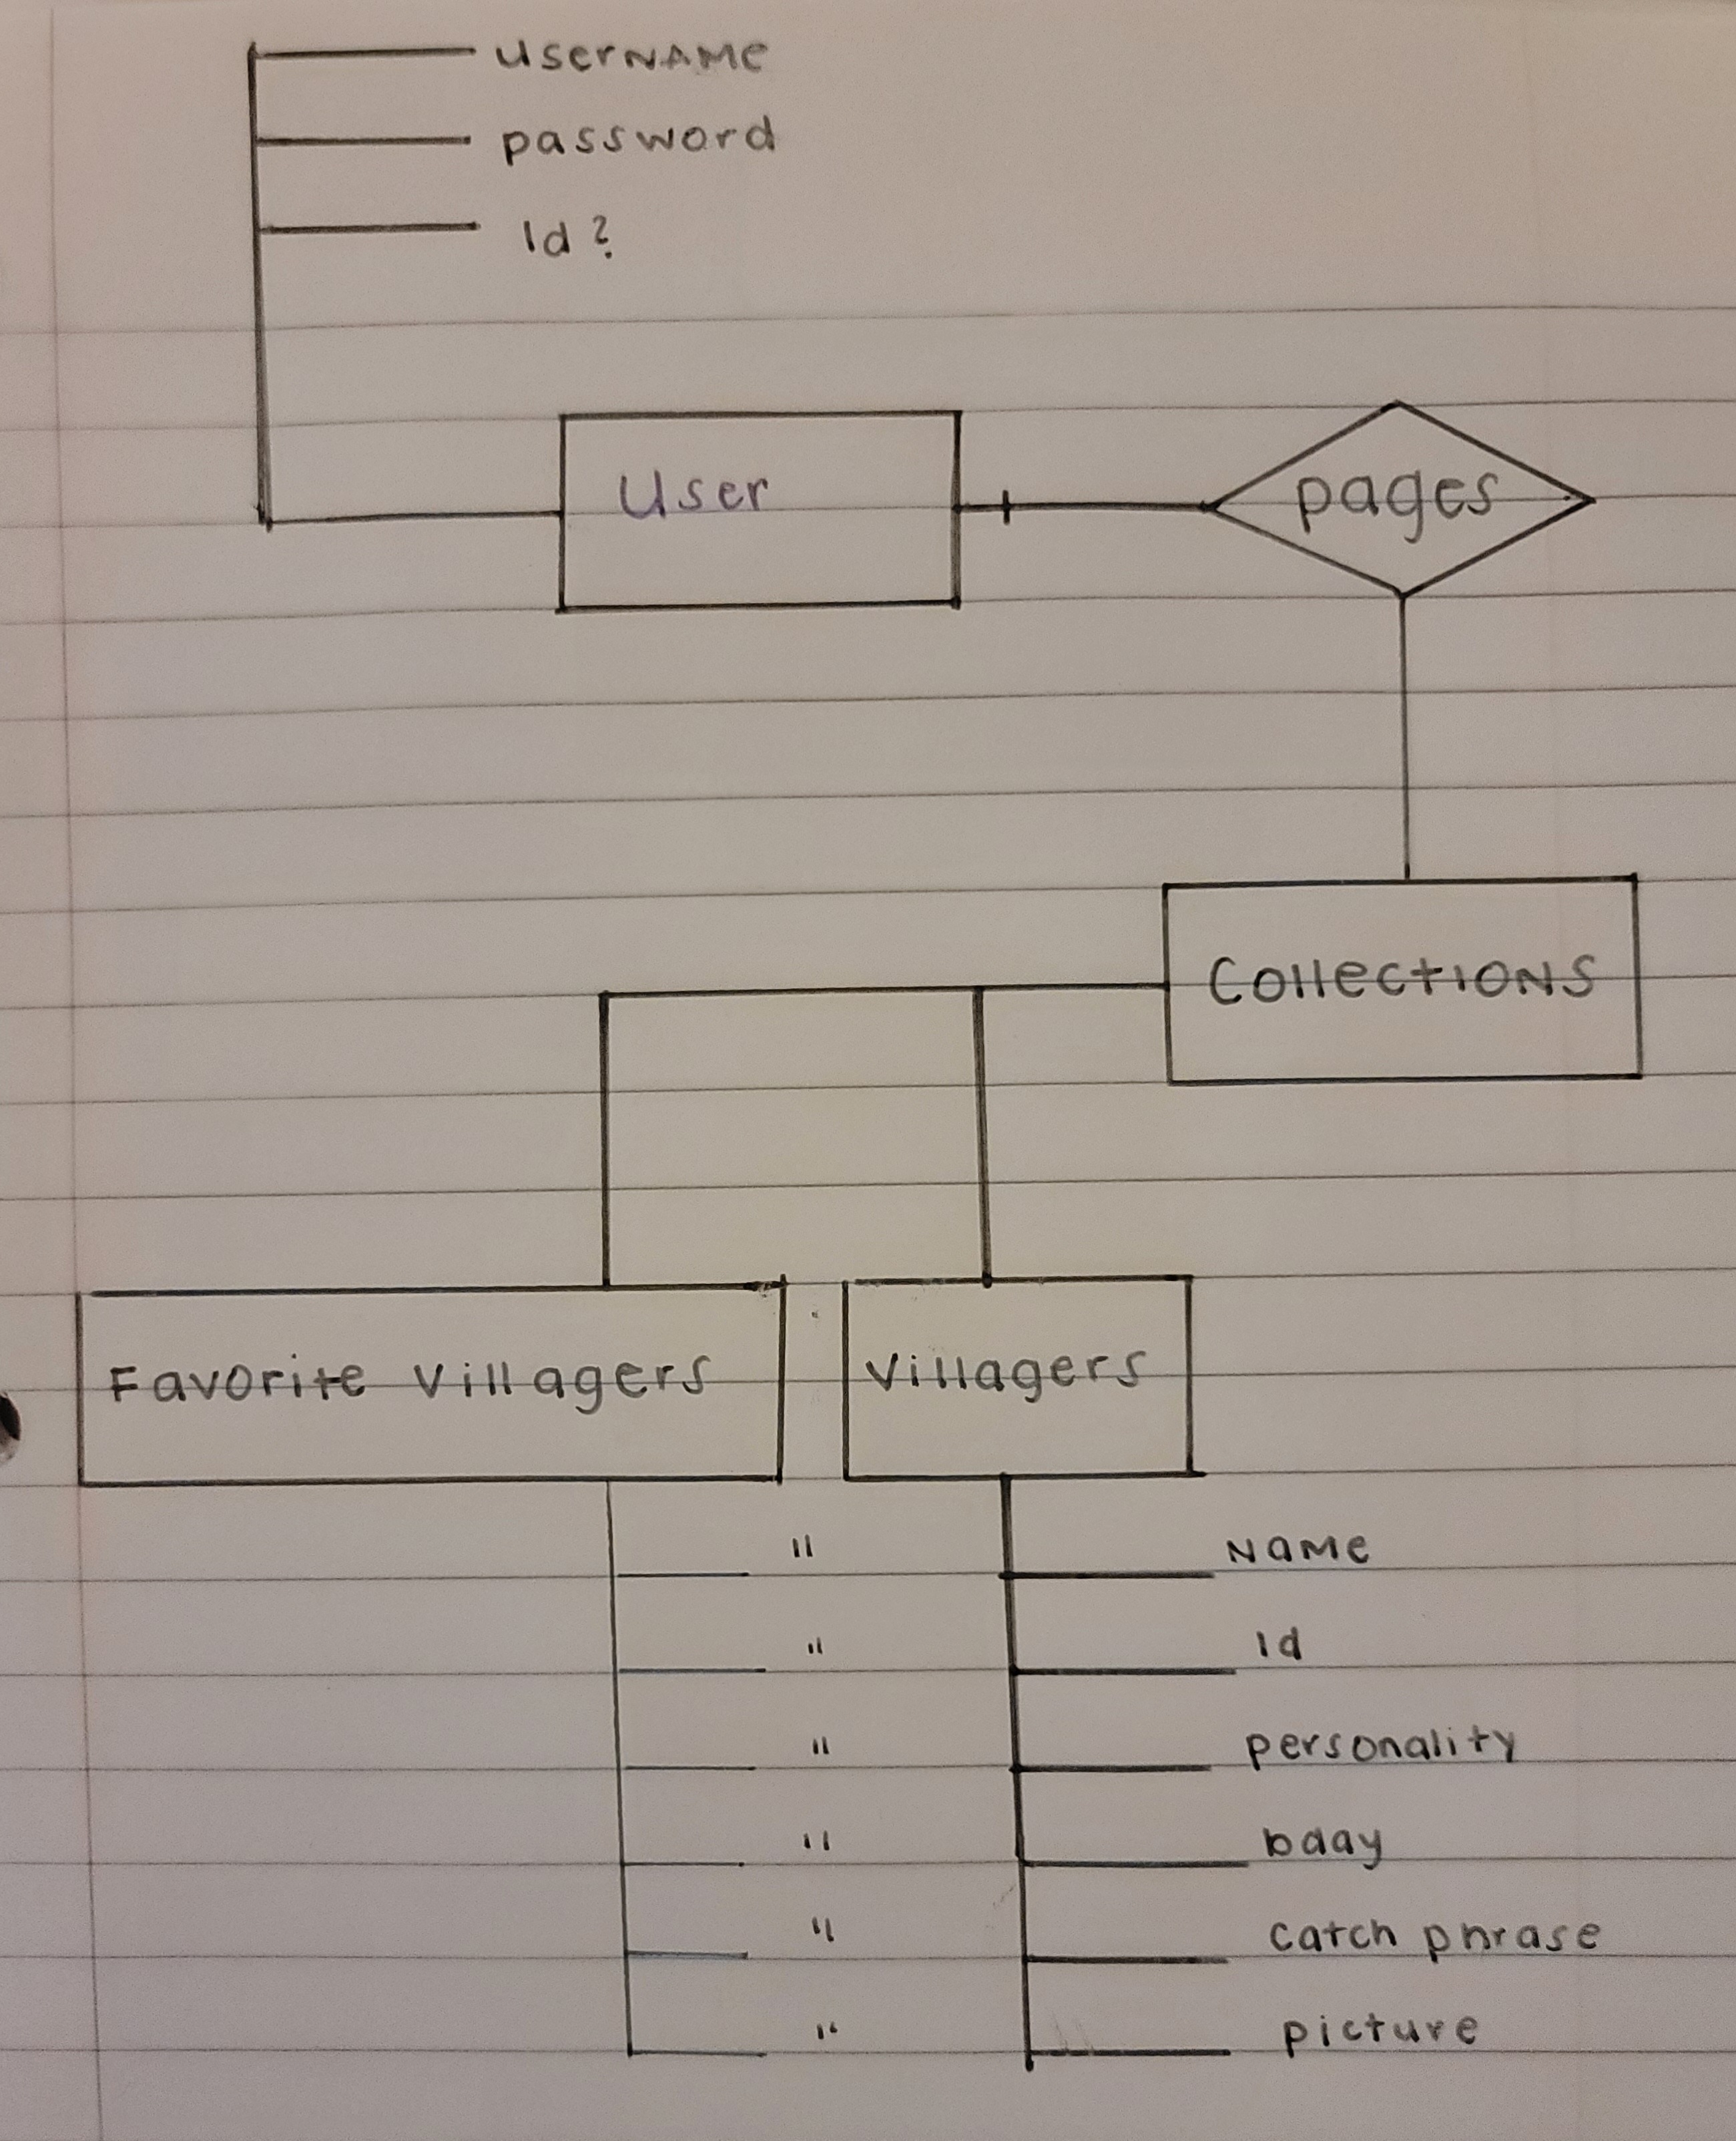 username
password
Id?
User
pages
Collections
Favorite Villagers
Villagers
" Name
" Id
" personality
" bday
" catch phrase
" picture